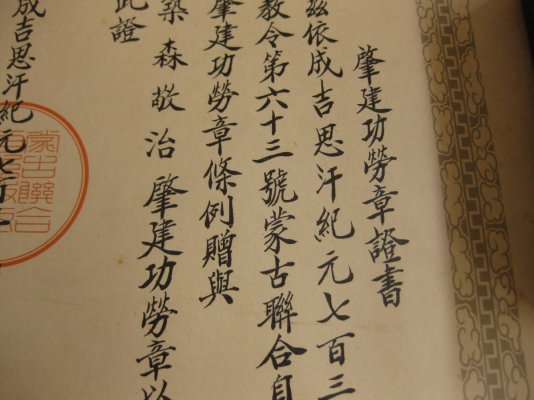 肇建功勞章證書
茲依成吉思汗紀元七百三
教令第六十三號蒙古聯合自
肇建功勞章條例贈與
築森敬治肇建功勞章以
此證
成吉思汗紀元七百
蒙古聯合